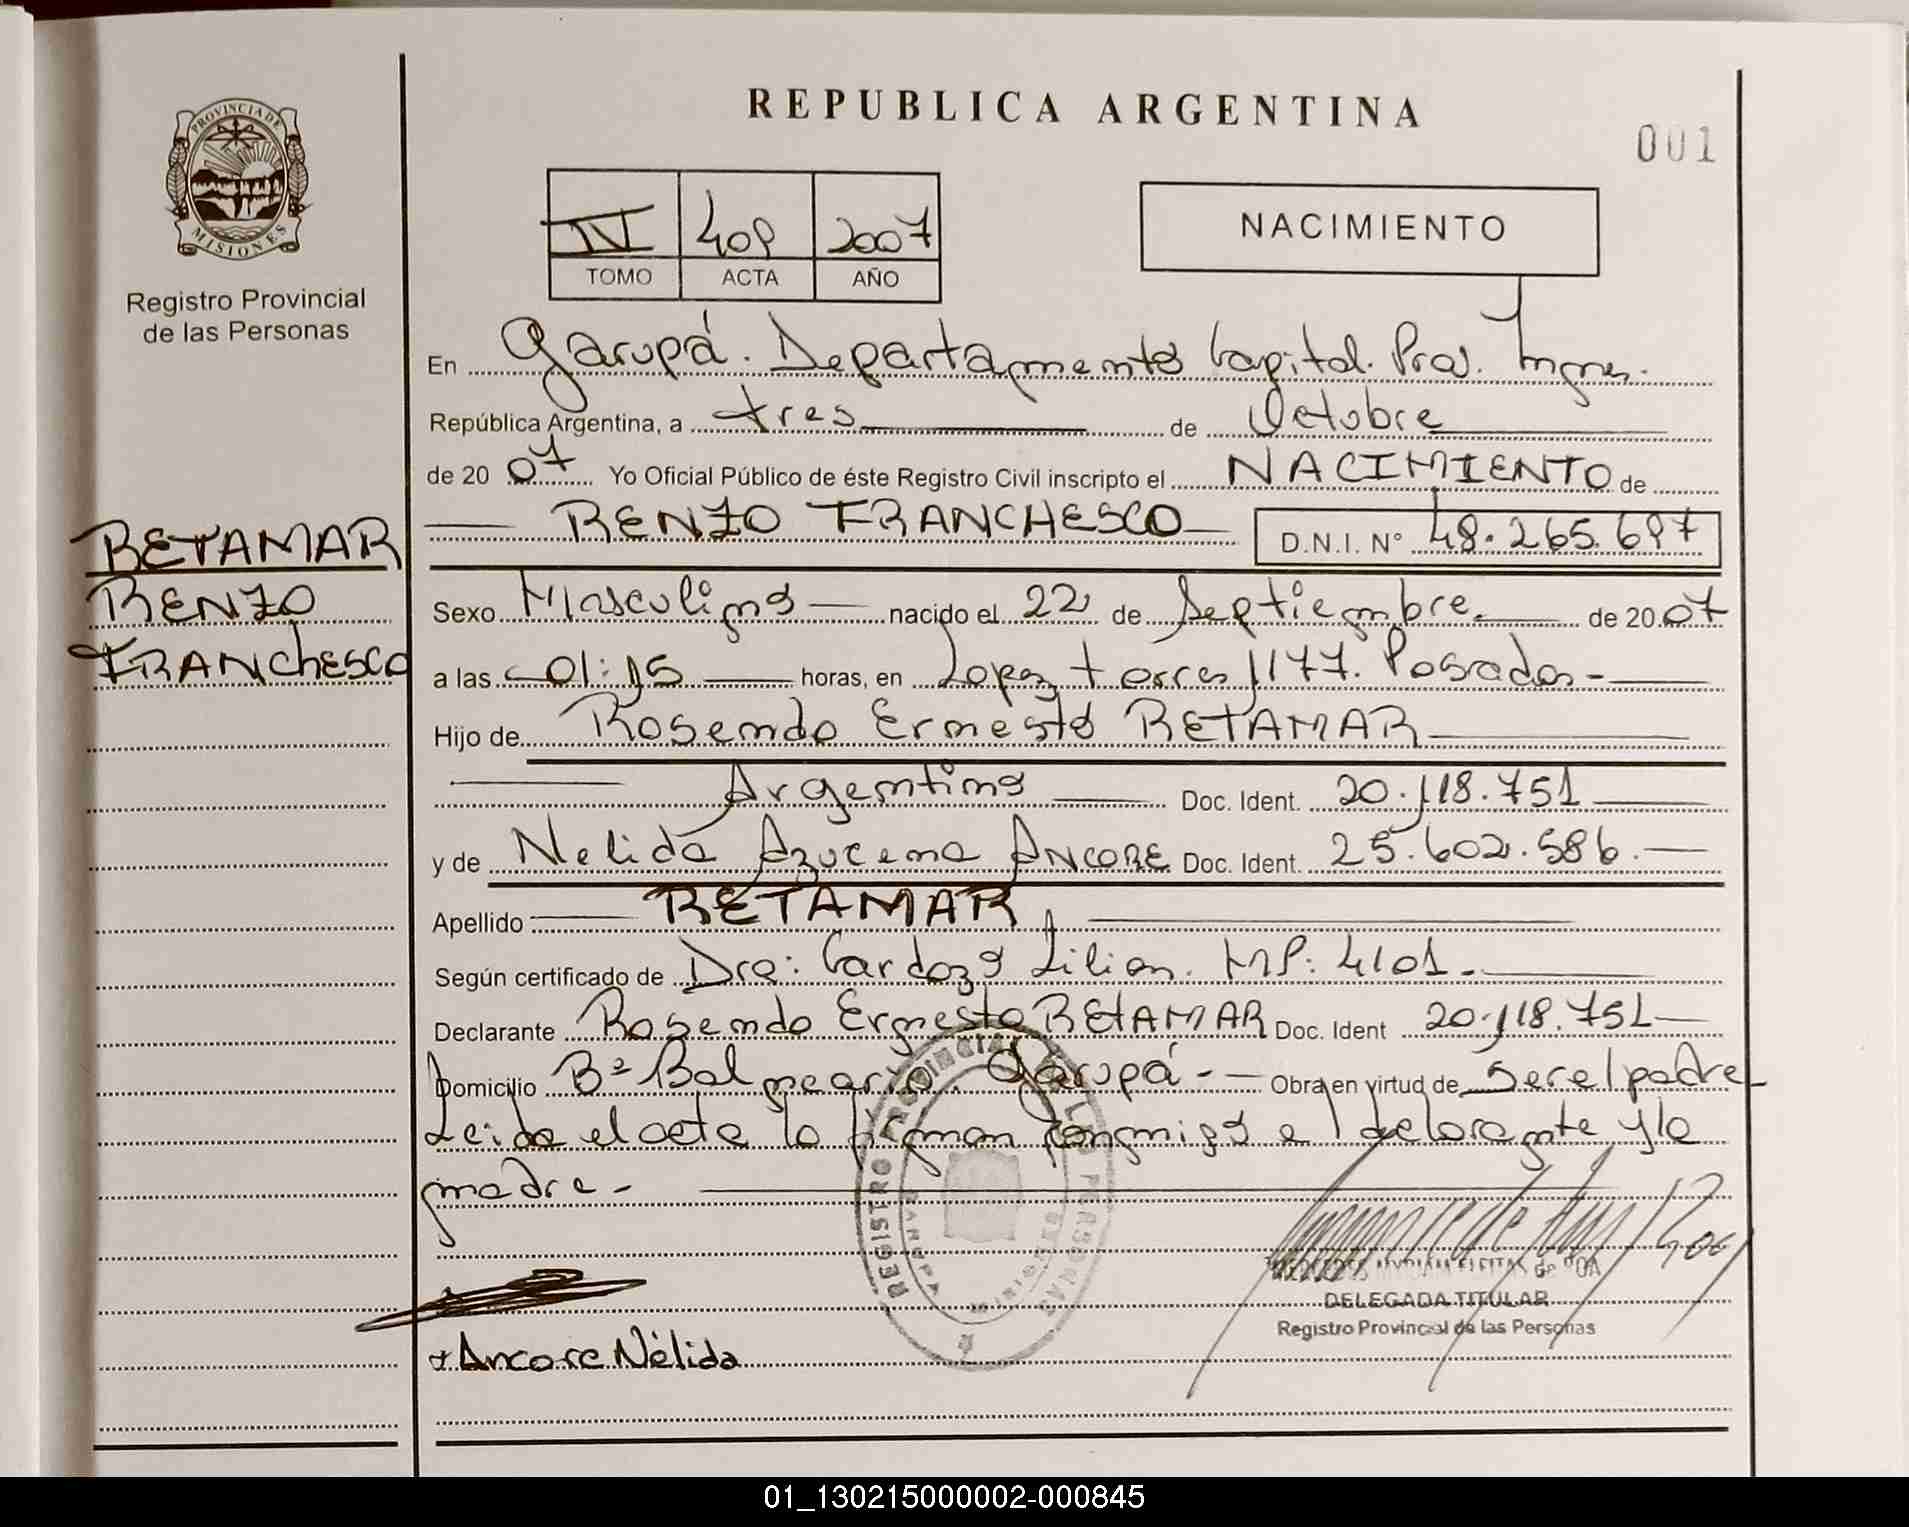 REPUBLICA ARGENTINA
001
PROVINCIA DE
MISIONES
Registro Provincial
de las Personas
IV 409 2007
TOMO ACTA AÑO
NACIMIENTO
En Garupá. Departamento Capital. Prov. Mnes.
República Argentina, a tres de Octubre
de 20 07 Yo Oficial Público de éste Registro Civil inscripto el NACIMIENTO de
RENZO FRANCHESCO D.N.I. N° 48.265.697
RETAMAR
RENZO
FRANCHESCO
Sexo Masculino nacido el 22 de Septiembre de 20 07
a las 01:15 horas, en Lopez torres 1177. Posadas -
Hijo de Rosendo Ernesto RETAMAR
Argentino Doc. Ident. 20.118.751
y de Nelida Azucena ANCORE Doc. Ident. 25.602.586.
Apellido RETAMAR
Según certificado de Dra: Cardozo Lilian. MP: 4101.
Declarante Rosendo Ernesto RETAMAR Doc. Ident 20.118.751
Domicilio B° Balneario. Garupá - Obra en virtud de ser el padre
Leida el acta la firman conmigo el declarante y la
madre -
REGISTRO PROVINCIAL DE LAS PERSONAS
GARUPA MISIONES
DELEGADA TITULAR
Registro Provincial de las Personas
+Ancore Nélida
01_130215000002-000845